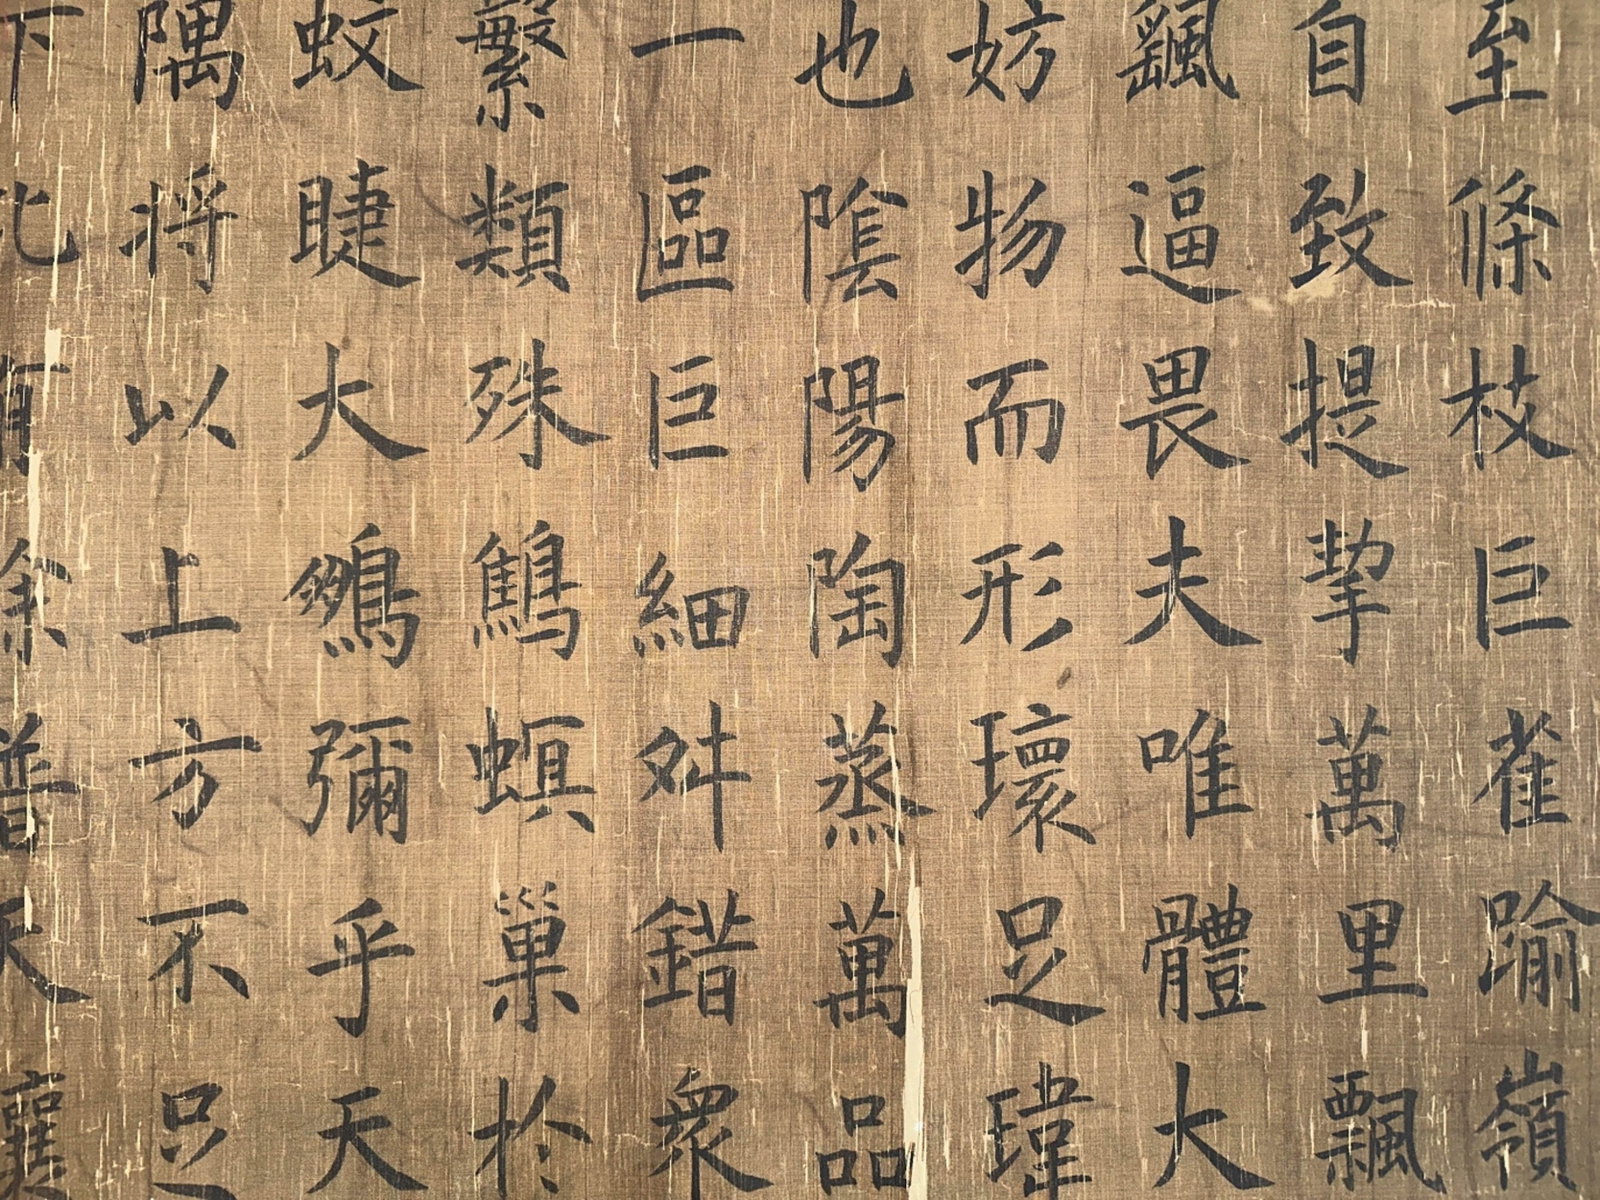 至條枝巨雀踰嶺
自致提挈萬里飄
飖逼畏夫唯體大
妨物而形瓌足瑋
也陰陽陶蒸萬品
一區巨細舛錯眾
繁類殊鷦螟巢於
蚊睫大鵬彌乎天
隅將以上方不足
下比有餘普天壤